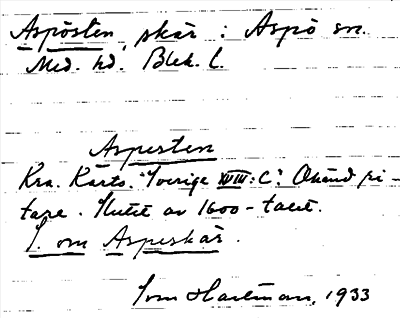 Aspösten, skär i Aspö sn.
Med. hd. Blek. l.
Aspesten
Kra. Kartv. "Sverige XVIII:C". Okänd ri-
tare. Slutet av 1600-talet.
S. om Aspeskär.
Tom Hartman, 1933